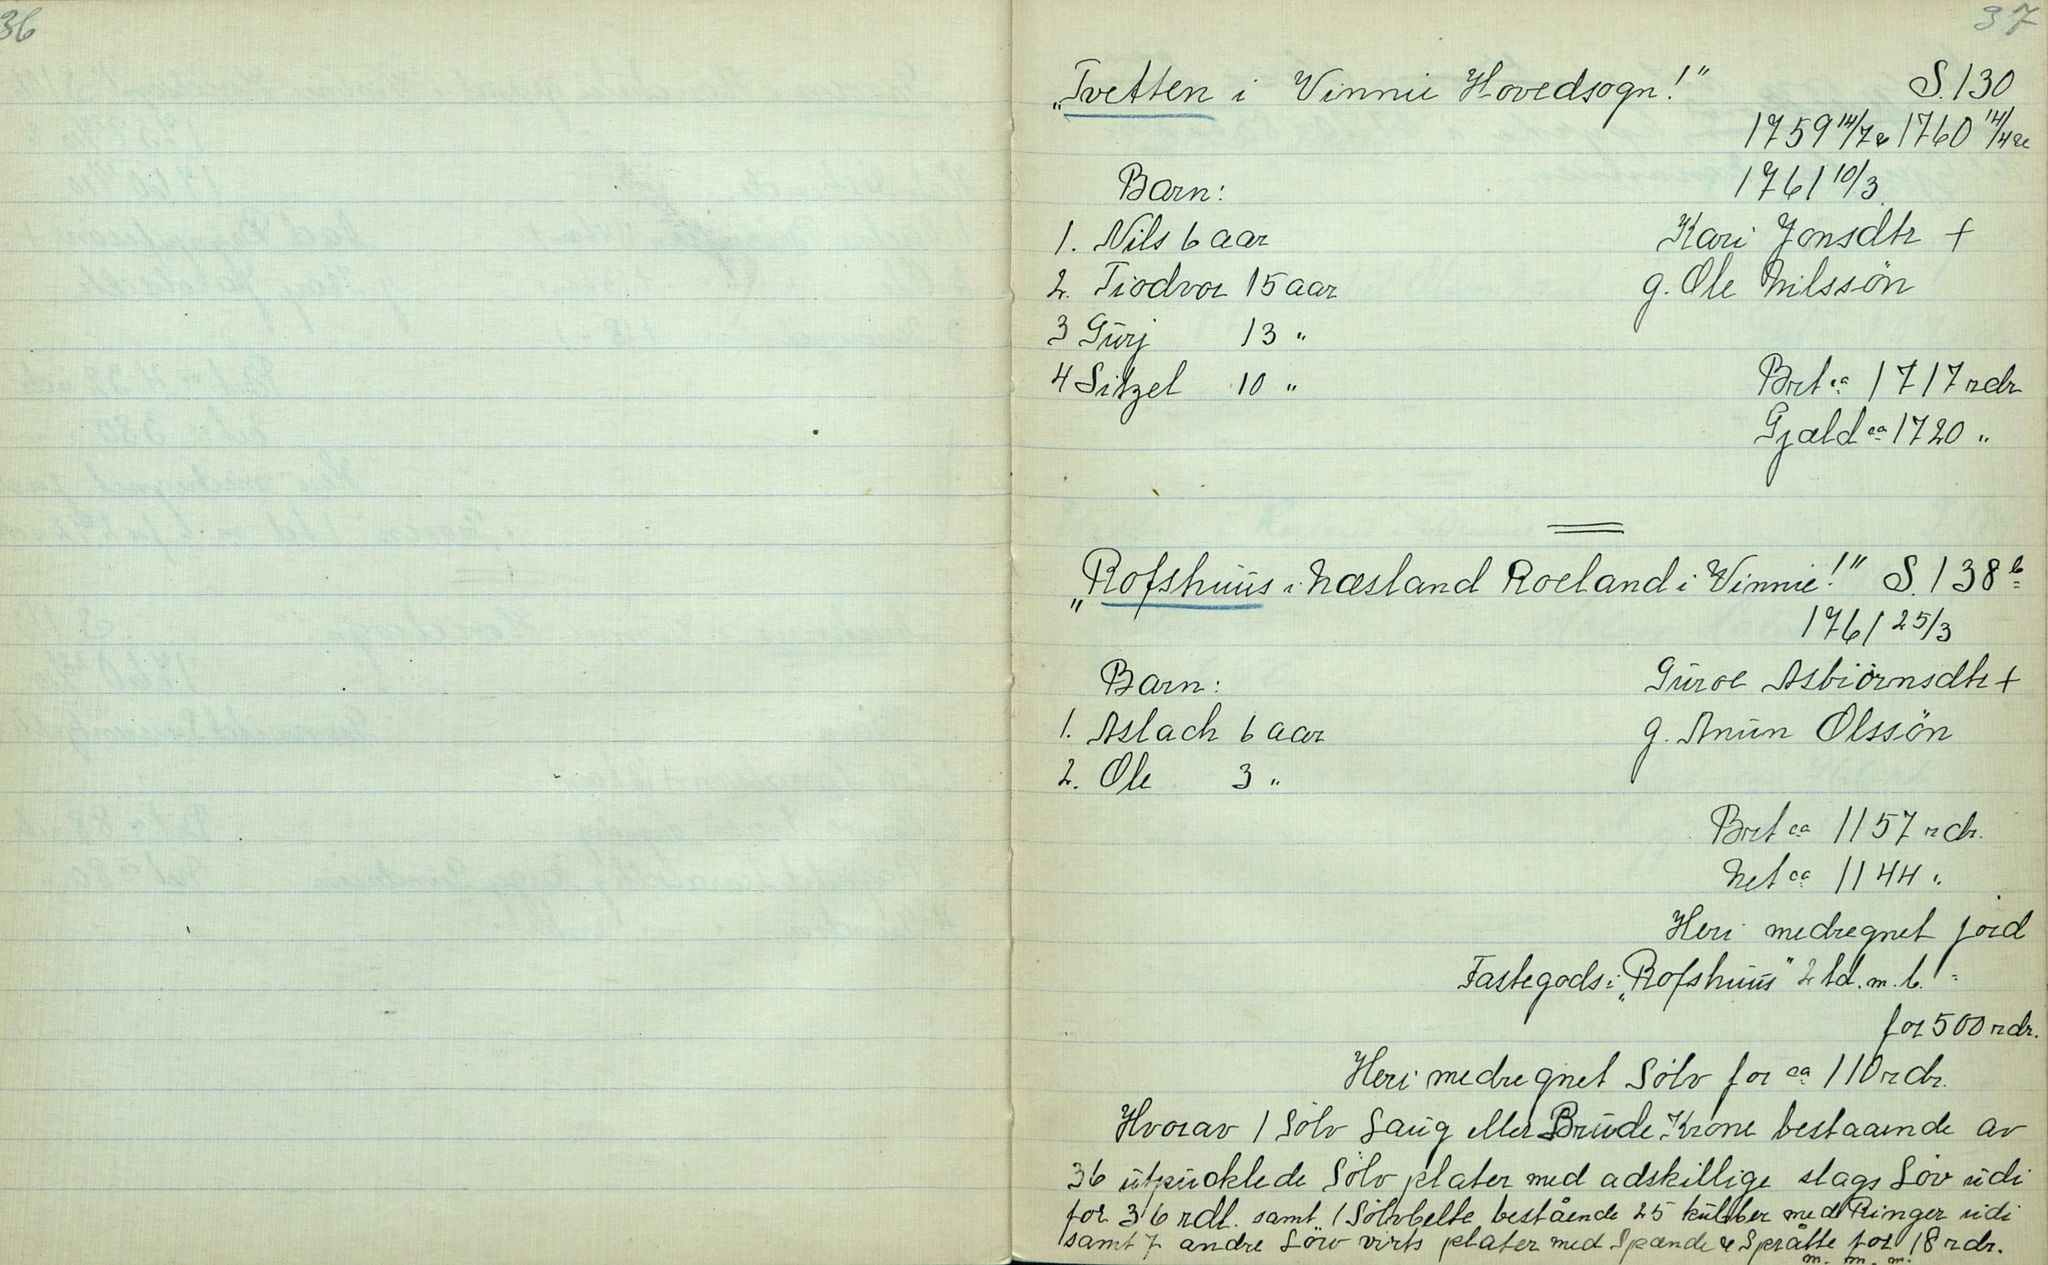 36
37
„Tvetten i Vinnie Hovedsogn!" S. 130
1759 14/7 & 1760 14/4
Barn: 1761 10/3
1. Nils 6 aar Kari Jonsdtr +
2. Tiodvor 15 aar g. Ole Nilssön
3 Gürj 13 "
4 Sitzel 10 " Brt ca 1717 rdr
Gjæld ca 1720 "
„Rofshuüs i Næsland Roeland i Vinnie!" S. 138 b
1761 25/3
Barn: Güroe Asbiörnsdtr +
1. Aslach 6 aar g. Anün Olssön
2. Ole 3 "
Brt ca 1157 rdr.
Net ca 1144 "
Heri medregnet jord
Fastegods i „Rofshuüs" 2 td. m. b. =
for 500 rdr.
Heri medregnet Sölv for ca 110 rdr.
Hvorav 1 Sölv Laug eller Brude Krone bestaaende av
36 utpücklede Sölv plater med adskillige slags Löv udi
for 36 rdl. samt 1 Sölvbelte bestående 25 külber med Ringer udi
samt 7 andre Löv virts plater med Spænde & Språtte for 18 rdr.
m. m. m.